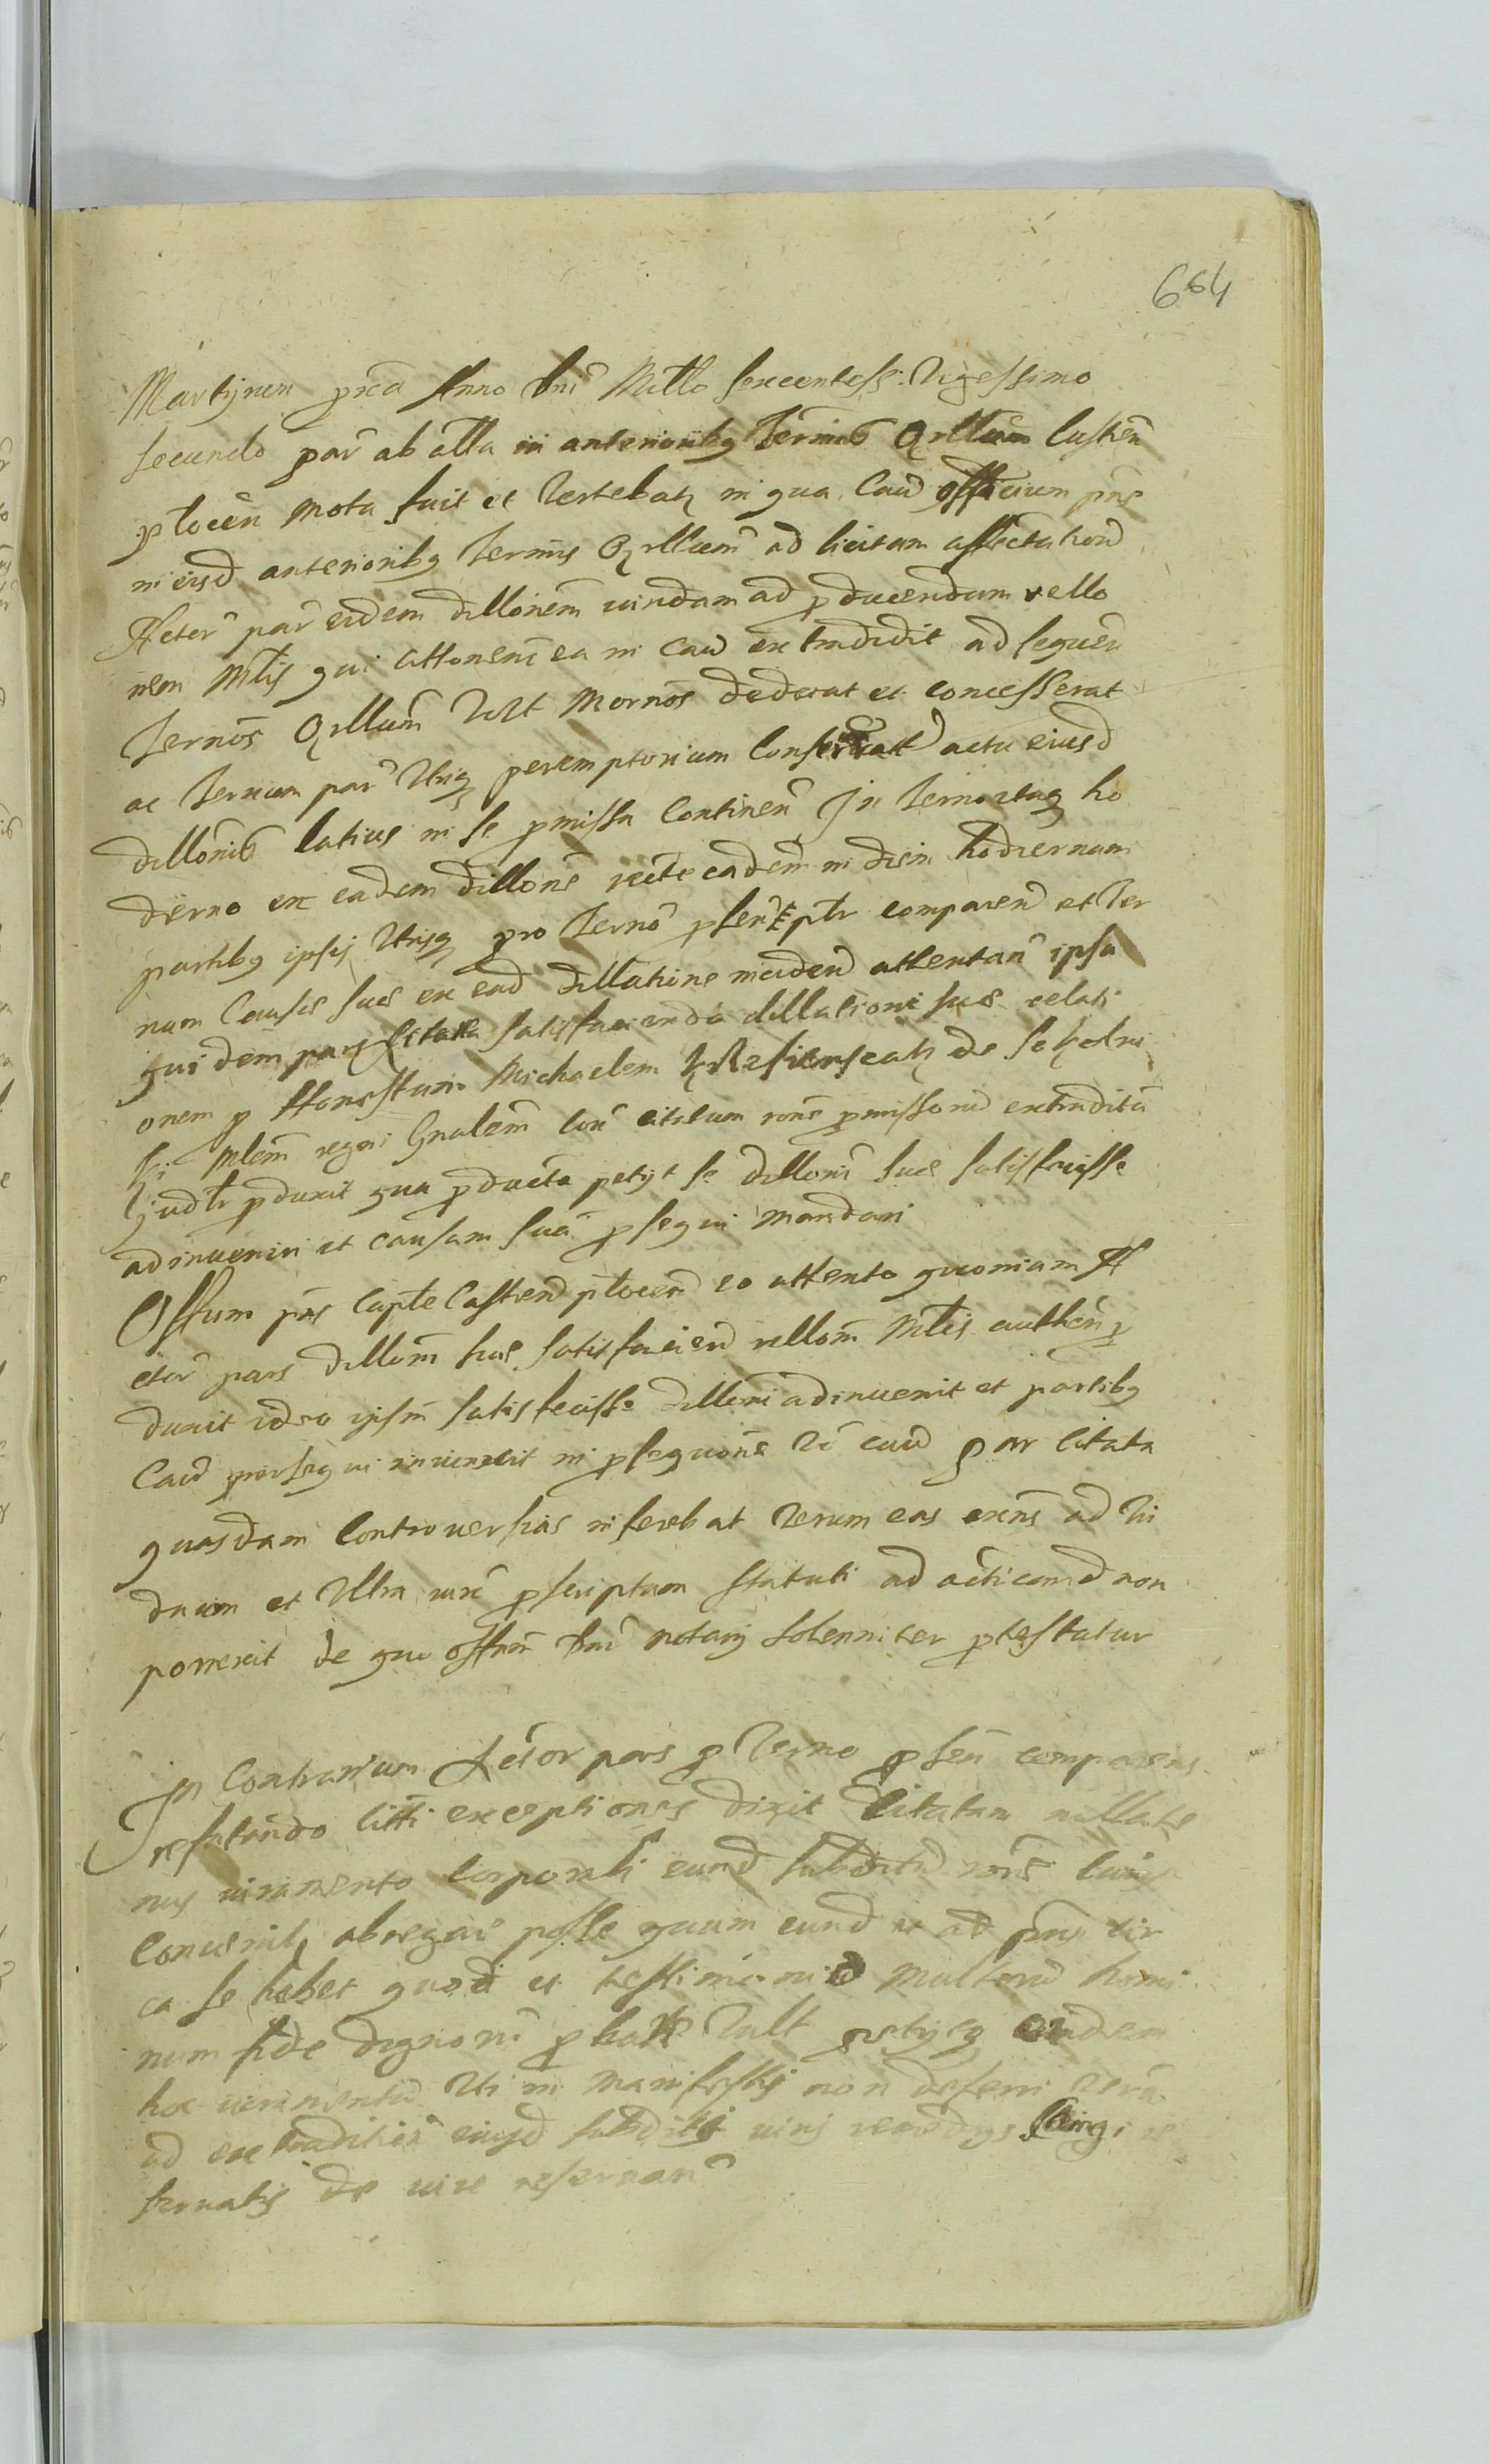 664
Martinum pxa Anno Dni Millo sexcentess. Vigessimo
secundo par ab alta in anterioribq Termis Qrllarum Castren
plocen mota fuit et Vertebatz in qua Caud officium pns
in eisd anterioribq Termis Qrllarem ad licitam affectationd
Actor par eidem dillonem ciuidam ad pducendum rello
nem Mlis qui attonem ea in caud extradidit ad sequen
Ternos Qrllum Volt Mornos dederat et concesserat
ac Termium par Vtriq peremptorium Conseruatt actu eiusd
dillonis latius in se pmissa Continen In Termo itaq ho
dierno ex eadem dillone recte cadem in diem hodiernam
partibq ipsis Vtrisq pro Termo psen ptr comparen et Ter
num Causis suis ex ead dillatione inciden attentan ipsa
quidem pars Citata satisfacienda dillationi sue relati
onem p Honestum Michaelem de
ki Mlem regni Gnalem cou citatum rone pmissorum extraditu
Judtr pduxit qua pducta petyt se dilloni sue satisfecisse
adinueniri et causam sua psequi mandari
Offum pns Capte Castren plocen eo attento quoniam A
ctor pars dillom sue satisfacien rellom Mlis authen p
duxit ideo ipsm satisfecisse dilloni adinuenit et partibq
Caud prosequi iniunxit in psequone Vi caud par Citata
quasdam Controuersias inferebat verum eas exns ad Ju
dicium et Vltra iuri pscriptum statuti ad acticand non
porrexit de quo offum Dni notarij solenniter ptestatur
In Contrarium Actor pars p Termo psen comparens
refutando citti exceptiones dixit Citatam nullate
nus iuramento Corporali eund subditu rone cuius
Conuenitz abnegare posse quum eund
ca se habet quod et testimonio Multoru homi
num fide dignoru pbare Vult petijtq eundem
hoc iuramentu Vti in manifestis non deferri veru
ad extraditione eiusd subditi iuris remedys re
seruatis de iure reseruan